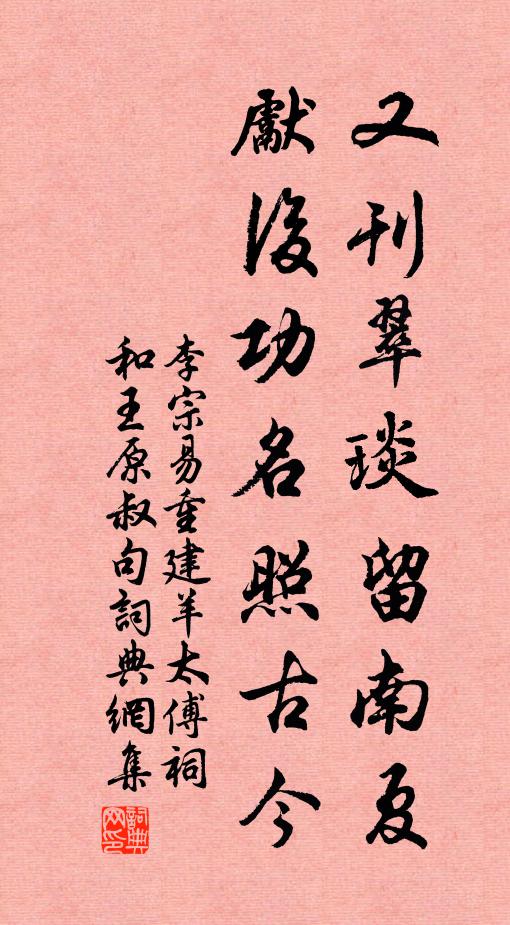 又刊翠琰留南夏
獻後功名照古今
李宗易重建羊太傅祠
和王原叔句詞典網集
詞典网印